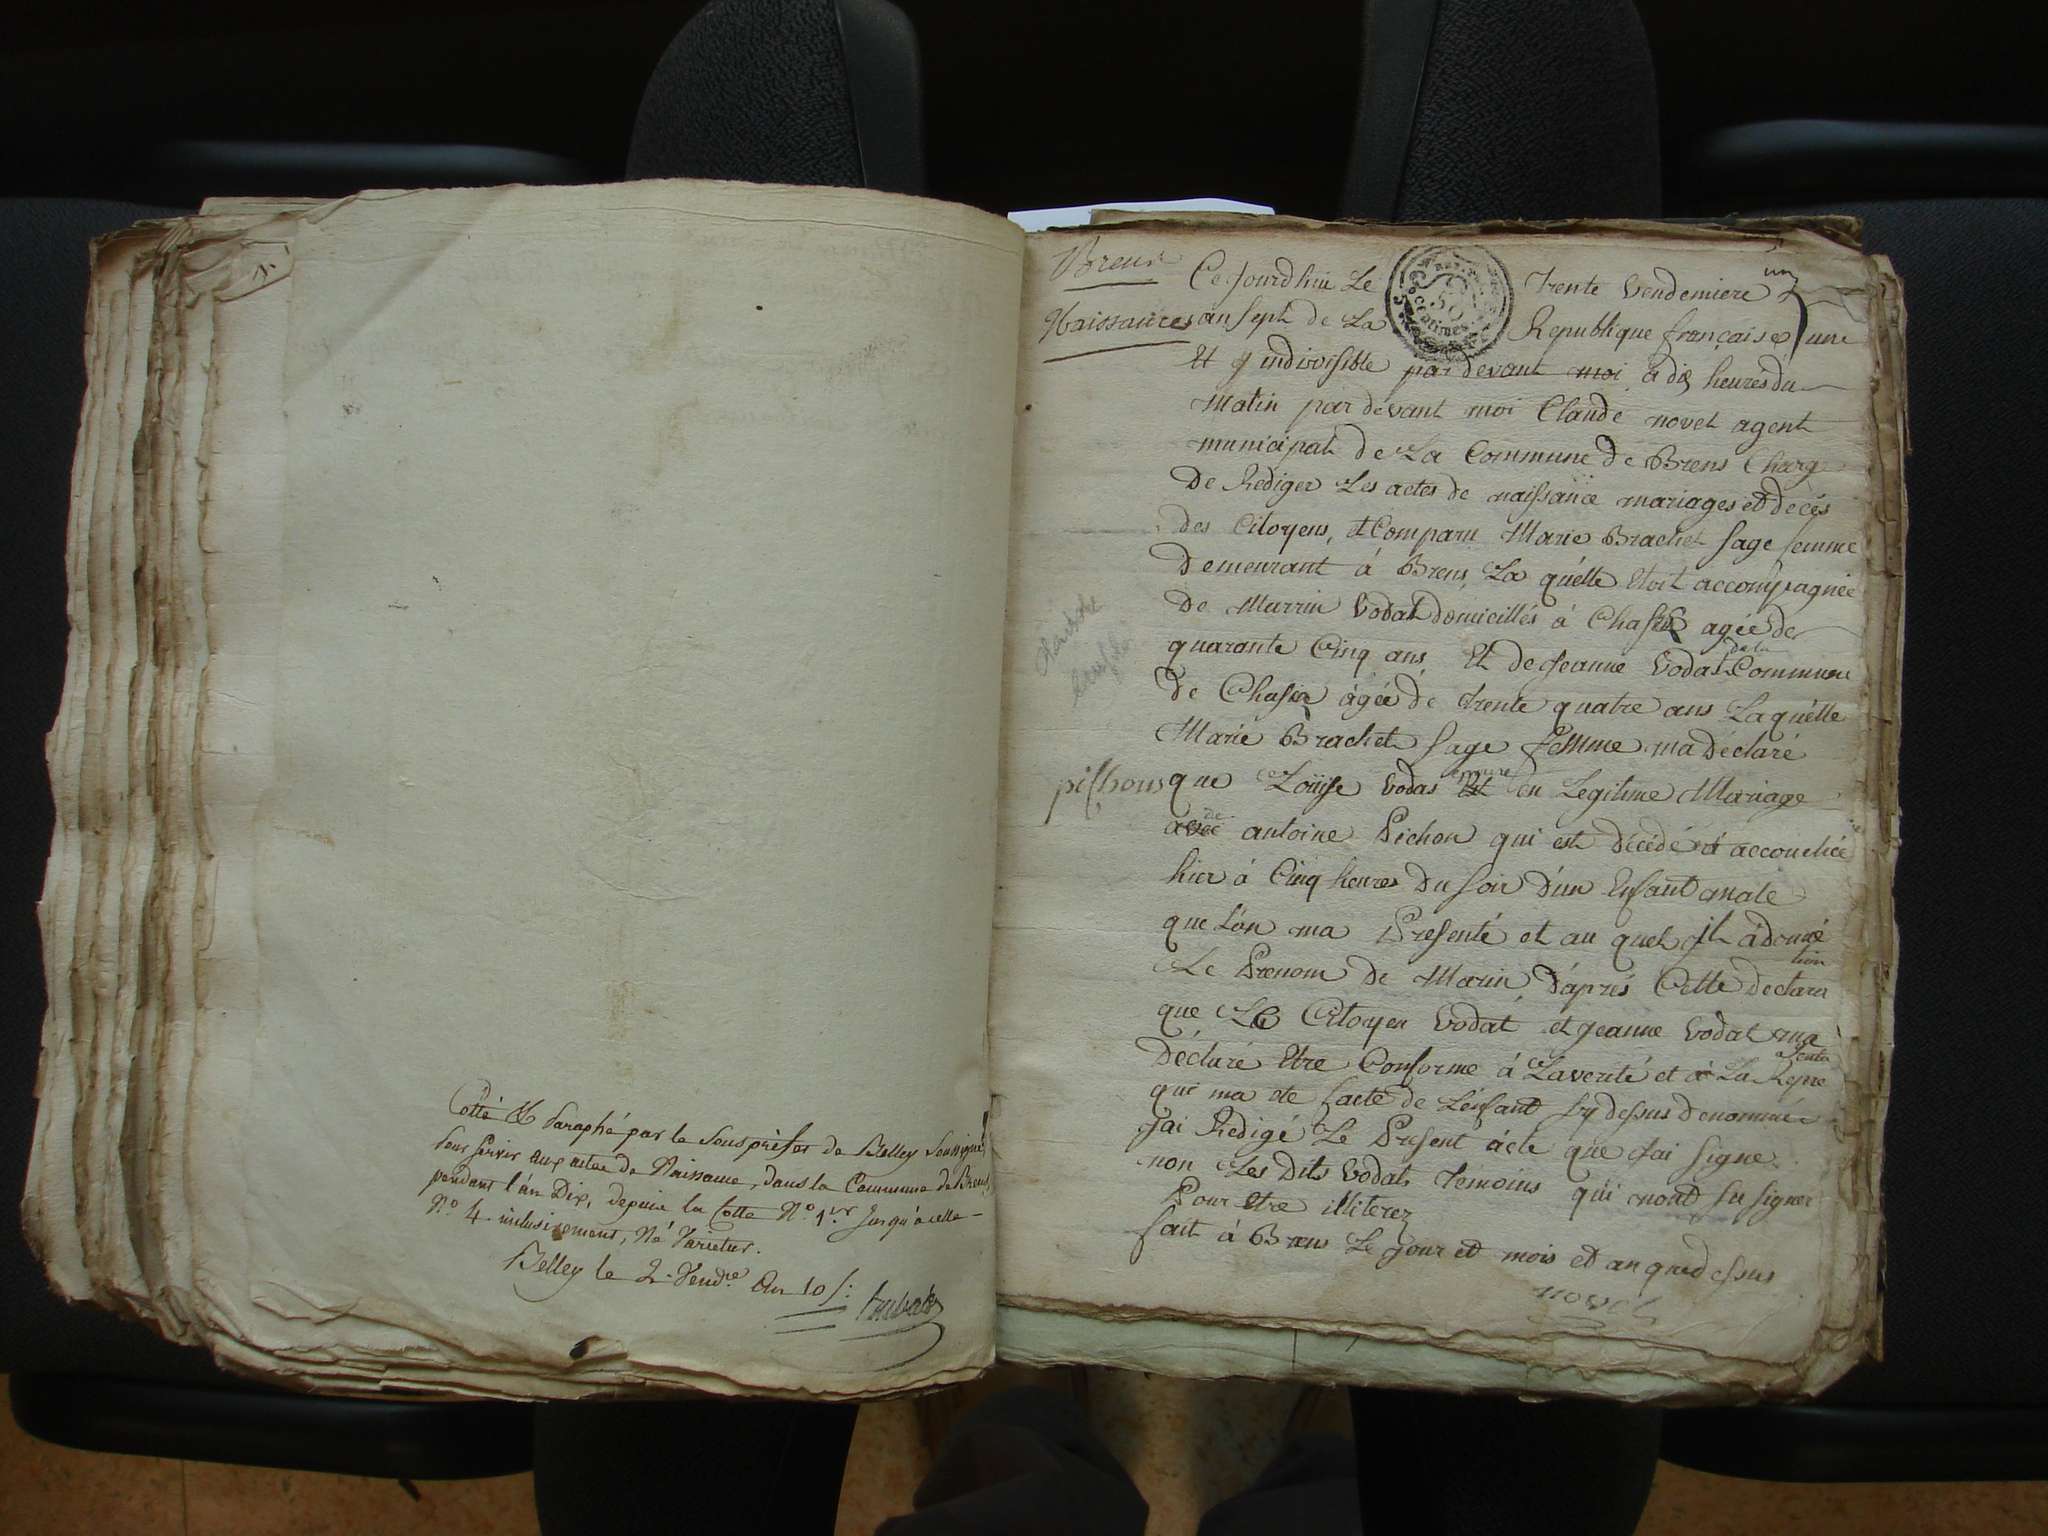 Cotté & Paraphé par le Sousprefet de Belley Soussigné,
Pour servir aux actes de Naissance, dans la Commune de Brens,
pendant l'an Dix, depuis la Cotte N.o 1.er Jusqu'a celle
N.o 4. inclusivement, Né Varietur.
Belley le 2. Vend.re an 10
Brens
Naissances
Ce jourdhui Le trente vendemiere
an sept de La Republique française une
50 centimes
Et indivisible par devant moi a dix heures du
matin par devant moi Claude novet agent
municipal de La Commune de Brens Charg
De Rediger Les actes de naissance mariages et décés
des Citoyens, Comparu Marie Brachet sage femme
Demeurant à Brens, La quélle étoit accompagnée
De Marrin vodat domicillés à agée de
quarante Cinq ans, Et de jeanne vodat de la Commune
De âgée de trente quatre ans Laquélle
Marie Brachet sage femme ma déclaré
pichons
que Louise vodas en Legitime Mariage
avec de antoine Pichon qui est décédé à accouchée
hier à Cinq heures Du soir D'un Enfant male
que L'on ma Presenté et au quel il à donné
Le Prenom de Marin, D'aprés Cette declara
tion
que Le Citoyen vodat et jeanne vodat ma
Déclaré Etre Conforme à La verité et à La Repre
senta
qui ma eté faite de L'enfant sy dessus denommée
J'ai Redigé Le Present acte que J'ai signe
non Les Dits vodat temoins qui nont su signer
Pour Etre illiterez
fait à Brens Le jour et mois et an que dessus
novet